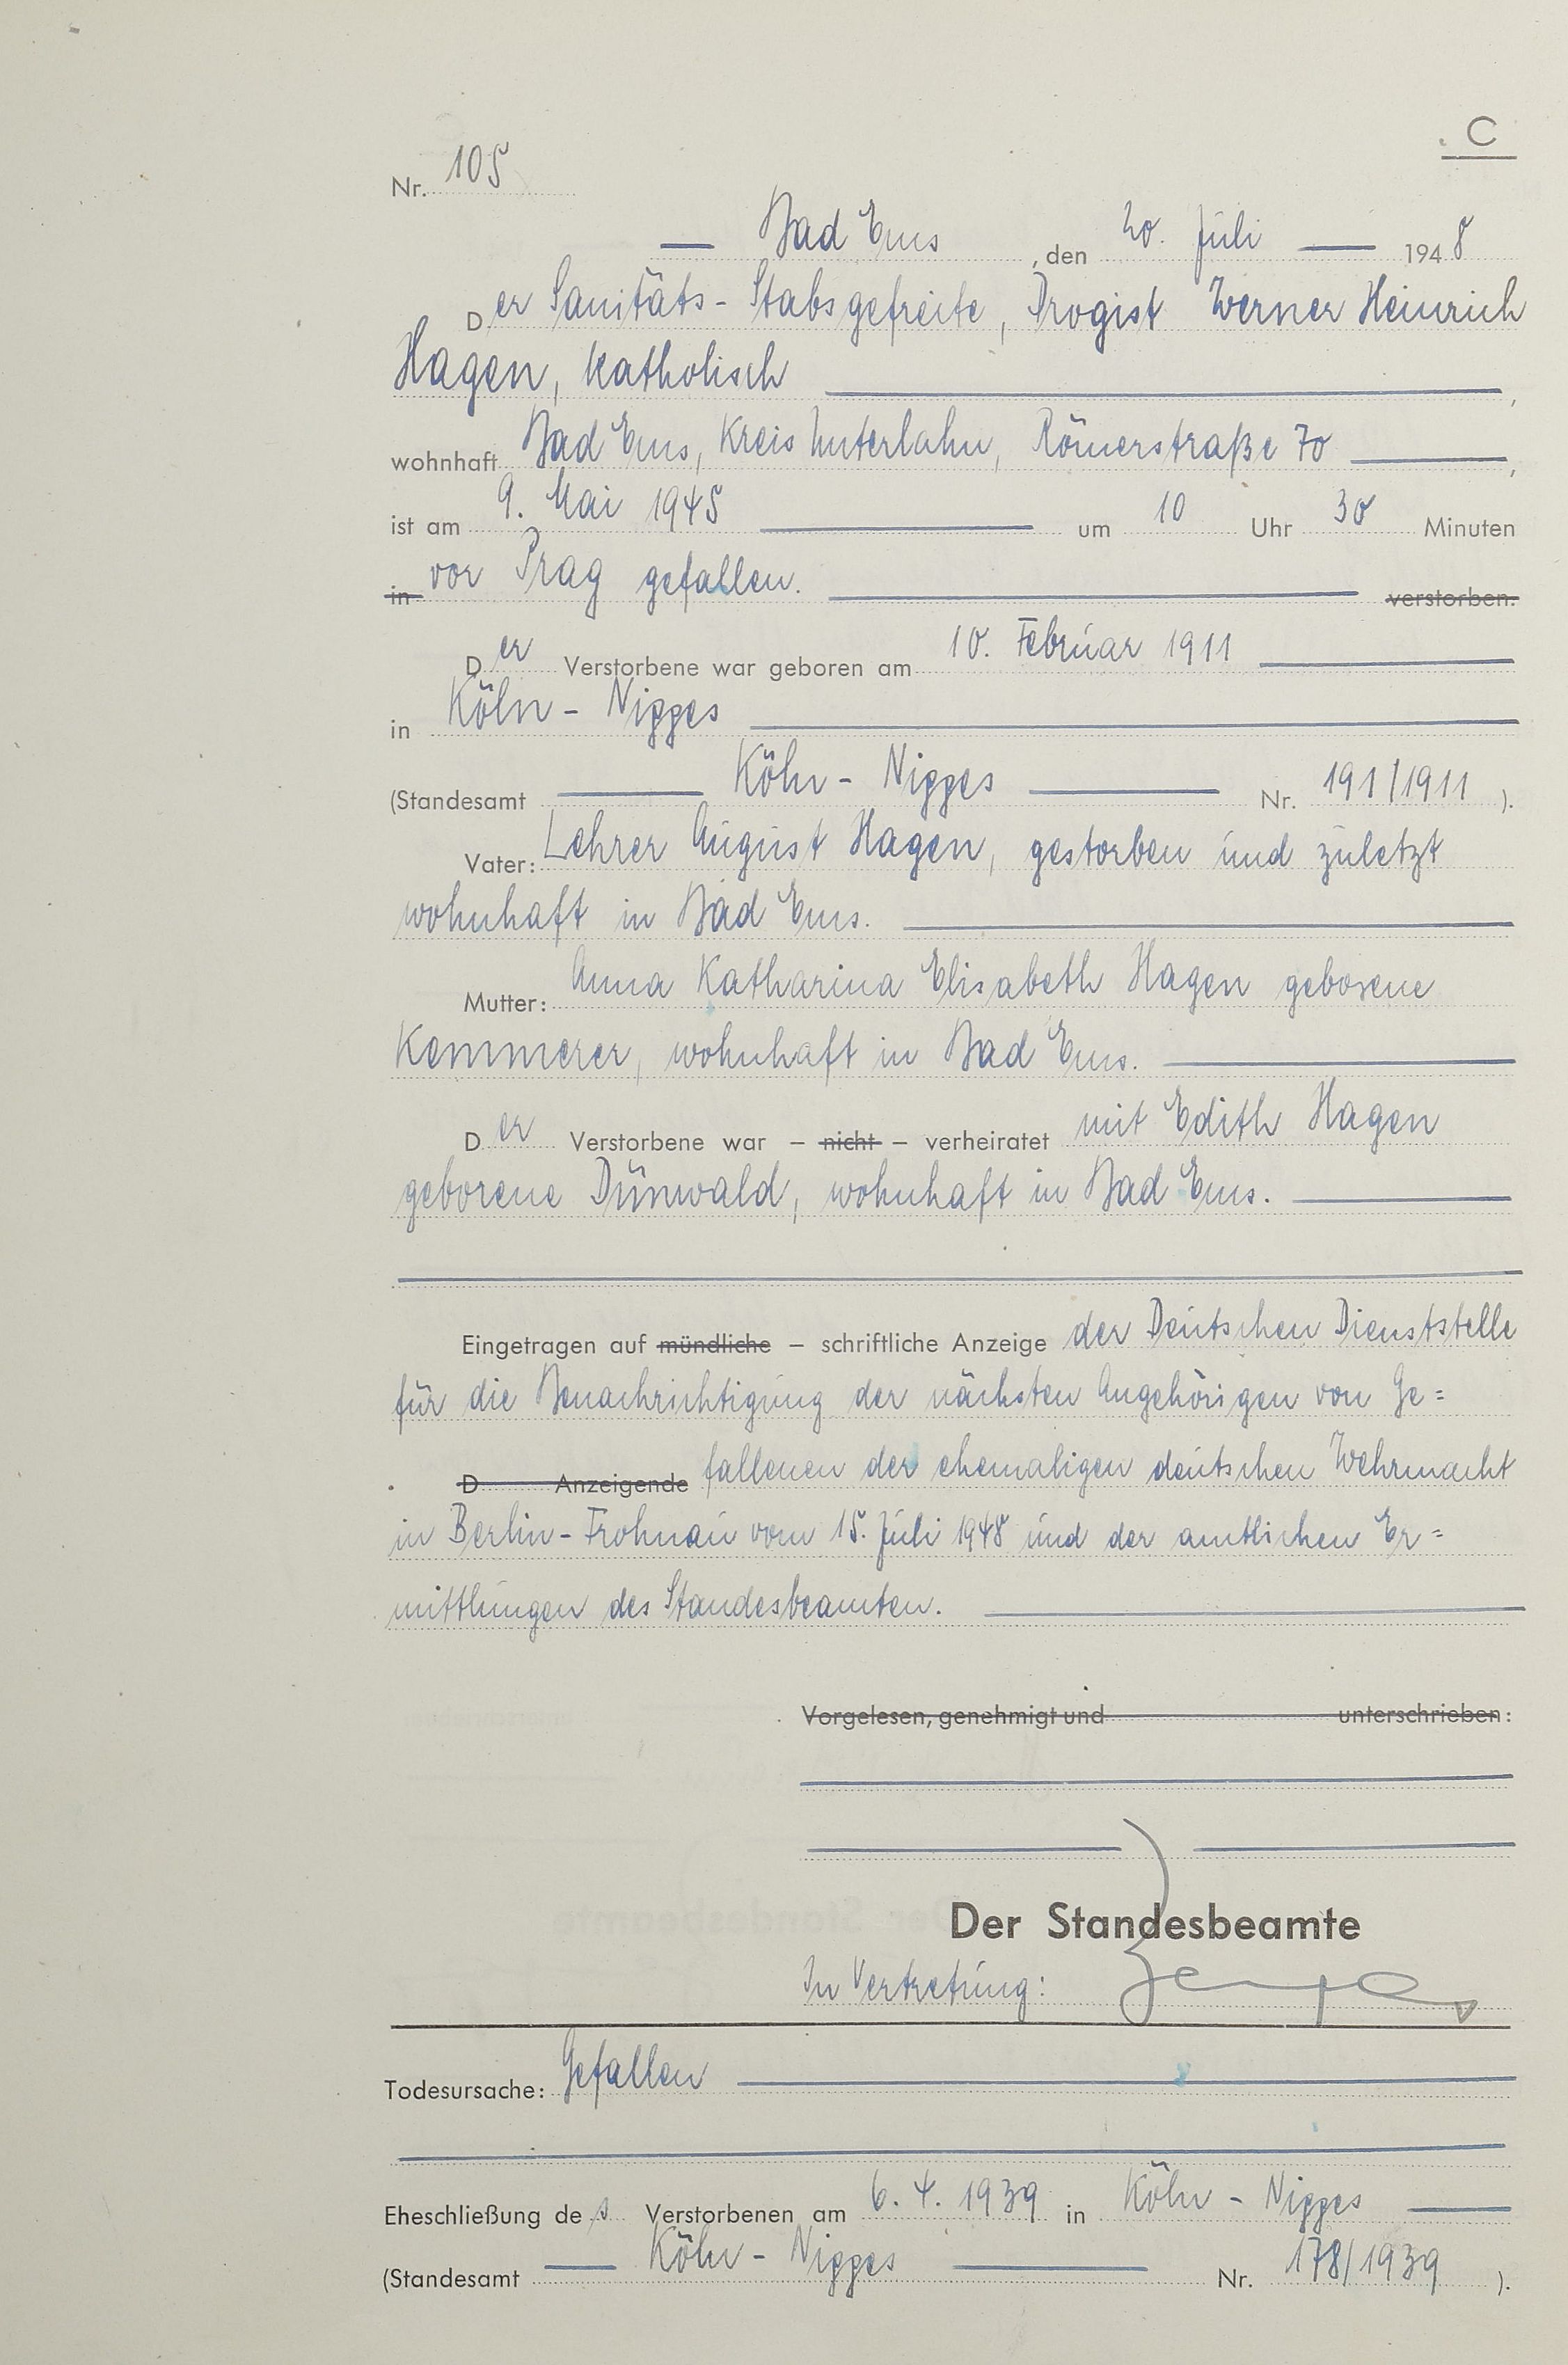 C
Nr. 105
Bad Ems, den 20. Juli 1948
Der Sanitäts-Stabsgefreite, Drogist Werner Heinrich
Hagen, katholisch,
wohnhaft Bad Ems, Kreis Unterlahn, Römerstraße 70,
ist am 9. Mai 1945 um 10 Uhr 30 Minuten
in vor Prag gefallen. verstorben.
Der Verstorbene war geboren am 10. Februar 1911
in Köln-Nippes
(Standesamt Köln-Nippes Nr. 191/1911).
Vater: Lehrer August Hagen, gestorben und zuletzt
wohnhaft in Bad Ems.
Mutter: Anna Katharina Elisabeth Hagen geborene
Kemmerer, wohnhaft in Bad Ems.
Der Verstorbene war – nicht – verheiratet mit Edith Hagen
geborene Dünwald, wohnhaft in Bad Ems.
Eingetragen auf mündliche – schriftliche Anzeige der Deutschen Dienststelle
für die Benachrichtigung der nächsten Angehörigen von Ge=
D Anzeigende fallenen der ehemaligen deutschen Wehrmacht
in Berlin-Frohnau vom 15. Juli 1948 und der amtlichen Er=
mittlungen des Standesbeamten.
Vorgelesen, genehmigt und unterschrieben:
Der Standesbeamte
In Vertretung:
Todesursache: Gefallen
Eheschließung des Verstorbenen am 6. 4. 1939 in Köln-Nippes
(Standesamt Köln-Nippes Nr. 178/1939).